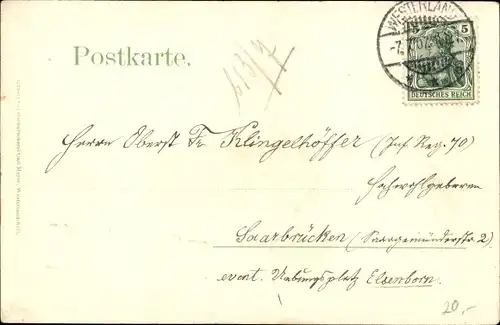 WESTERLAND
-7.7.07.
5
DEUTSCHES REICH
Postkarte.
Herrn Oberst Fr. Klingelhöffer (Inf. Reg. 70)
Hochwohlgeboren
Saarbrücken (Saargemünderstr. 2)
event. Uebungsplatz Elsenborn.
20,-